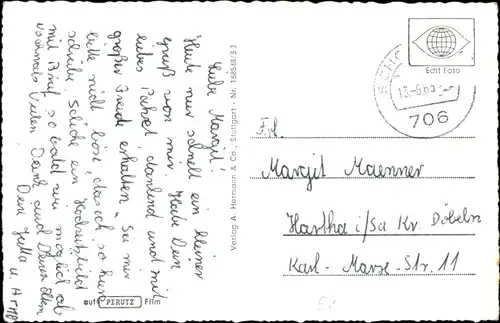 Liebe Margit!
Heute nur schnell ein kleiner
Gruß von mir. Habe Dein
liebes Paket dankend und mit
großer Freude erhalten. Sei mir
bitte nicht böse, das ich so kurz
schreibe. Schicke ein Hochzeitsbild
mit Brief so bald wie möglich ab
nochmals Vielen Dank auch Deinen Eltern
Deine Jutta u.
auf PERUTZ Film
Verlag A. Hermann & Co., Stuttgart · Nr. 168568/3 J
Echt Foto
706
Frl.
Margit Maenner
Hartha i/Sa Kr. Döbeln
Karl-Marx-Str. 11